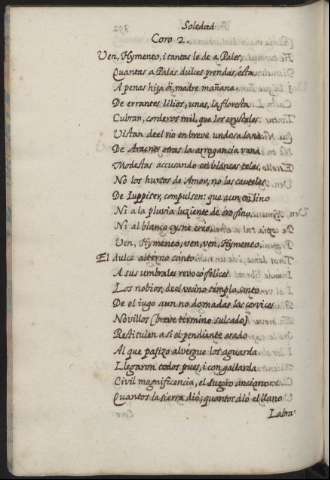 Soledad
Coro 2.
Ven, Hymeneo, i tantas le de a Pales,
Quantas a Palas dulces prendas, esta
A penas hija oi, madre mañana.
De errantes lilios, unas, la floresta
Cubran, corderos mil, que los crystales
Vistan del rio en breve undosa lana.
De Aracnes otras la arrogancia vana
Modestas accusando en blancas telas,
No los hurtos de Amor, no las cautelas
De Iuppiter, compulsen: que aun en lino
Ni a la pluvia luziente de oro fino,
Ni al blanco cysne creo.
Ven, Hymeneo, ven, ven, Hymeneo.
El dulce alterno canto
A sus umbrales revocó felices
Los novios, del vezino templo santo
De el iugo aun no domadas las cervices
Novillos (breve termino surcado)
Restituien a si el pendiente arado
Al que pagizo albergue los aguarda
Llegaron todos pues, i con gallarda
Civil magnificencia, el suegro anciano
Quantos la sierra dió, quantos dió el llano
Labra-